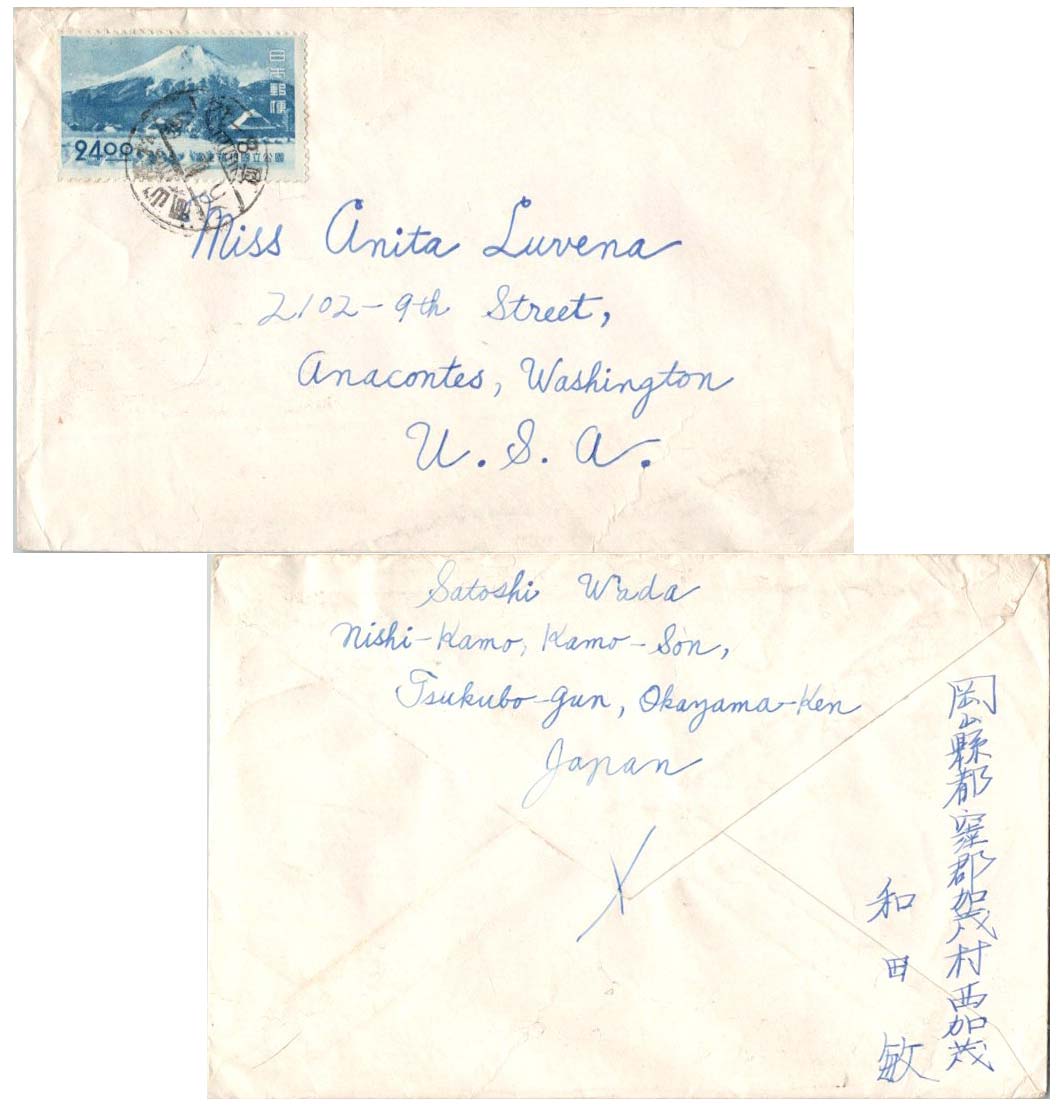 日本郵便
24.00
Miss Anita Luvena
2102-9th Street,
Anacontes, Washington
U. S. A.
Satoshi Wada
Nishi-Kamo, Kamo-Son,
Tsukubo-gun, Okayama-Ken
Japan
岡山縣都窪郡加茂村西加茂
和田 敏